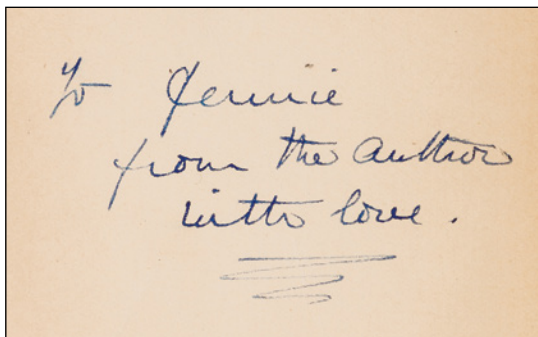 To Jennie
from the author
with love.